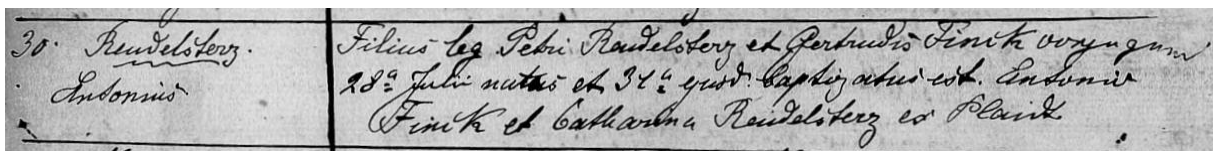 30. Rendelsterz. Filius leg Petri Rendelsterz et Gertrudis Finck conjugum
Antonius 28ª Julii natus et 31ª ejusd. baptizatus est. Antonio
Finck et Catharina Rendelsterz ex Plaidt